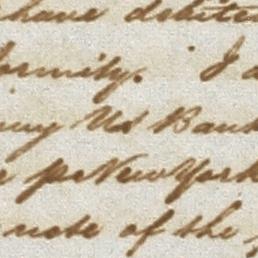 have debited
formity. I a
any US Bank
pr New York
note of the